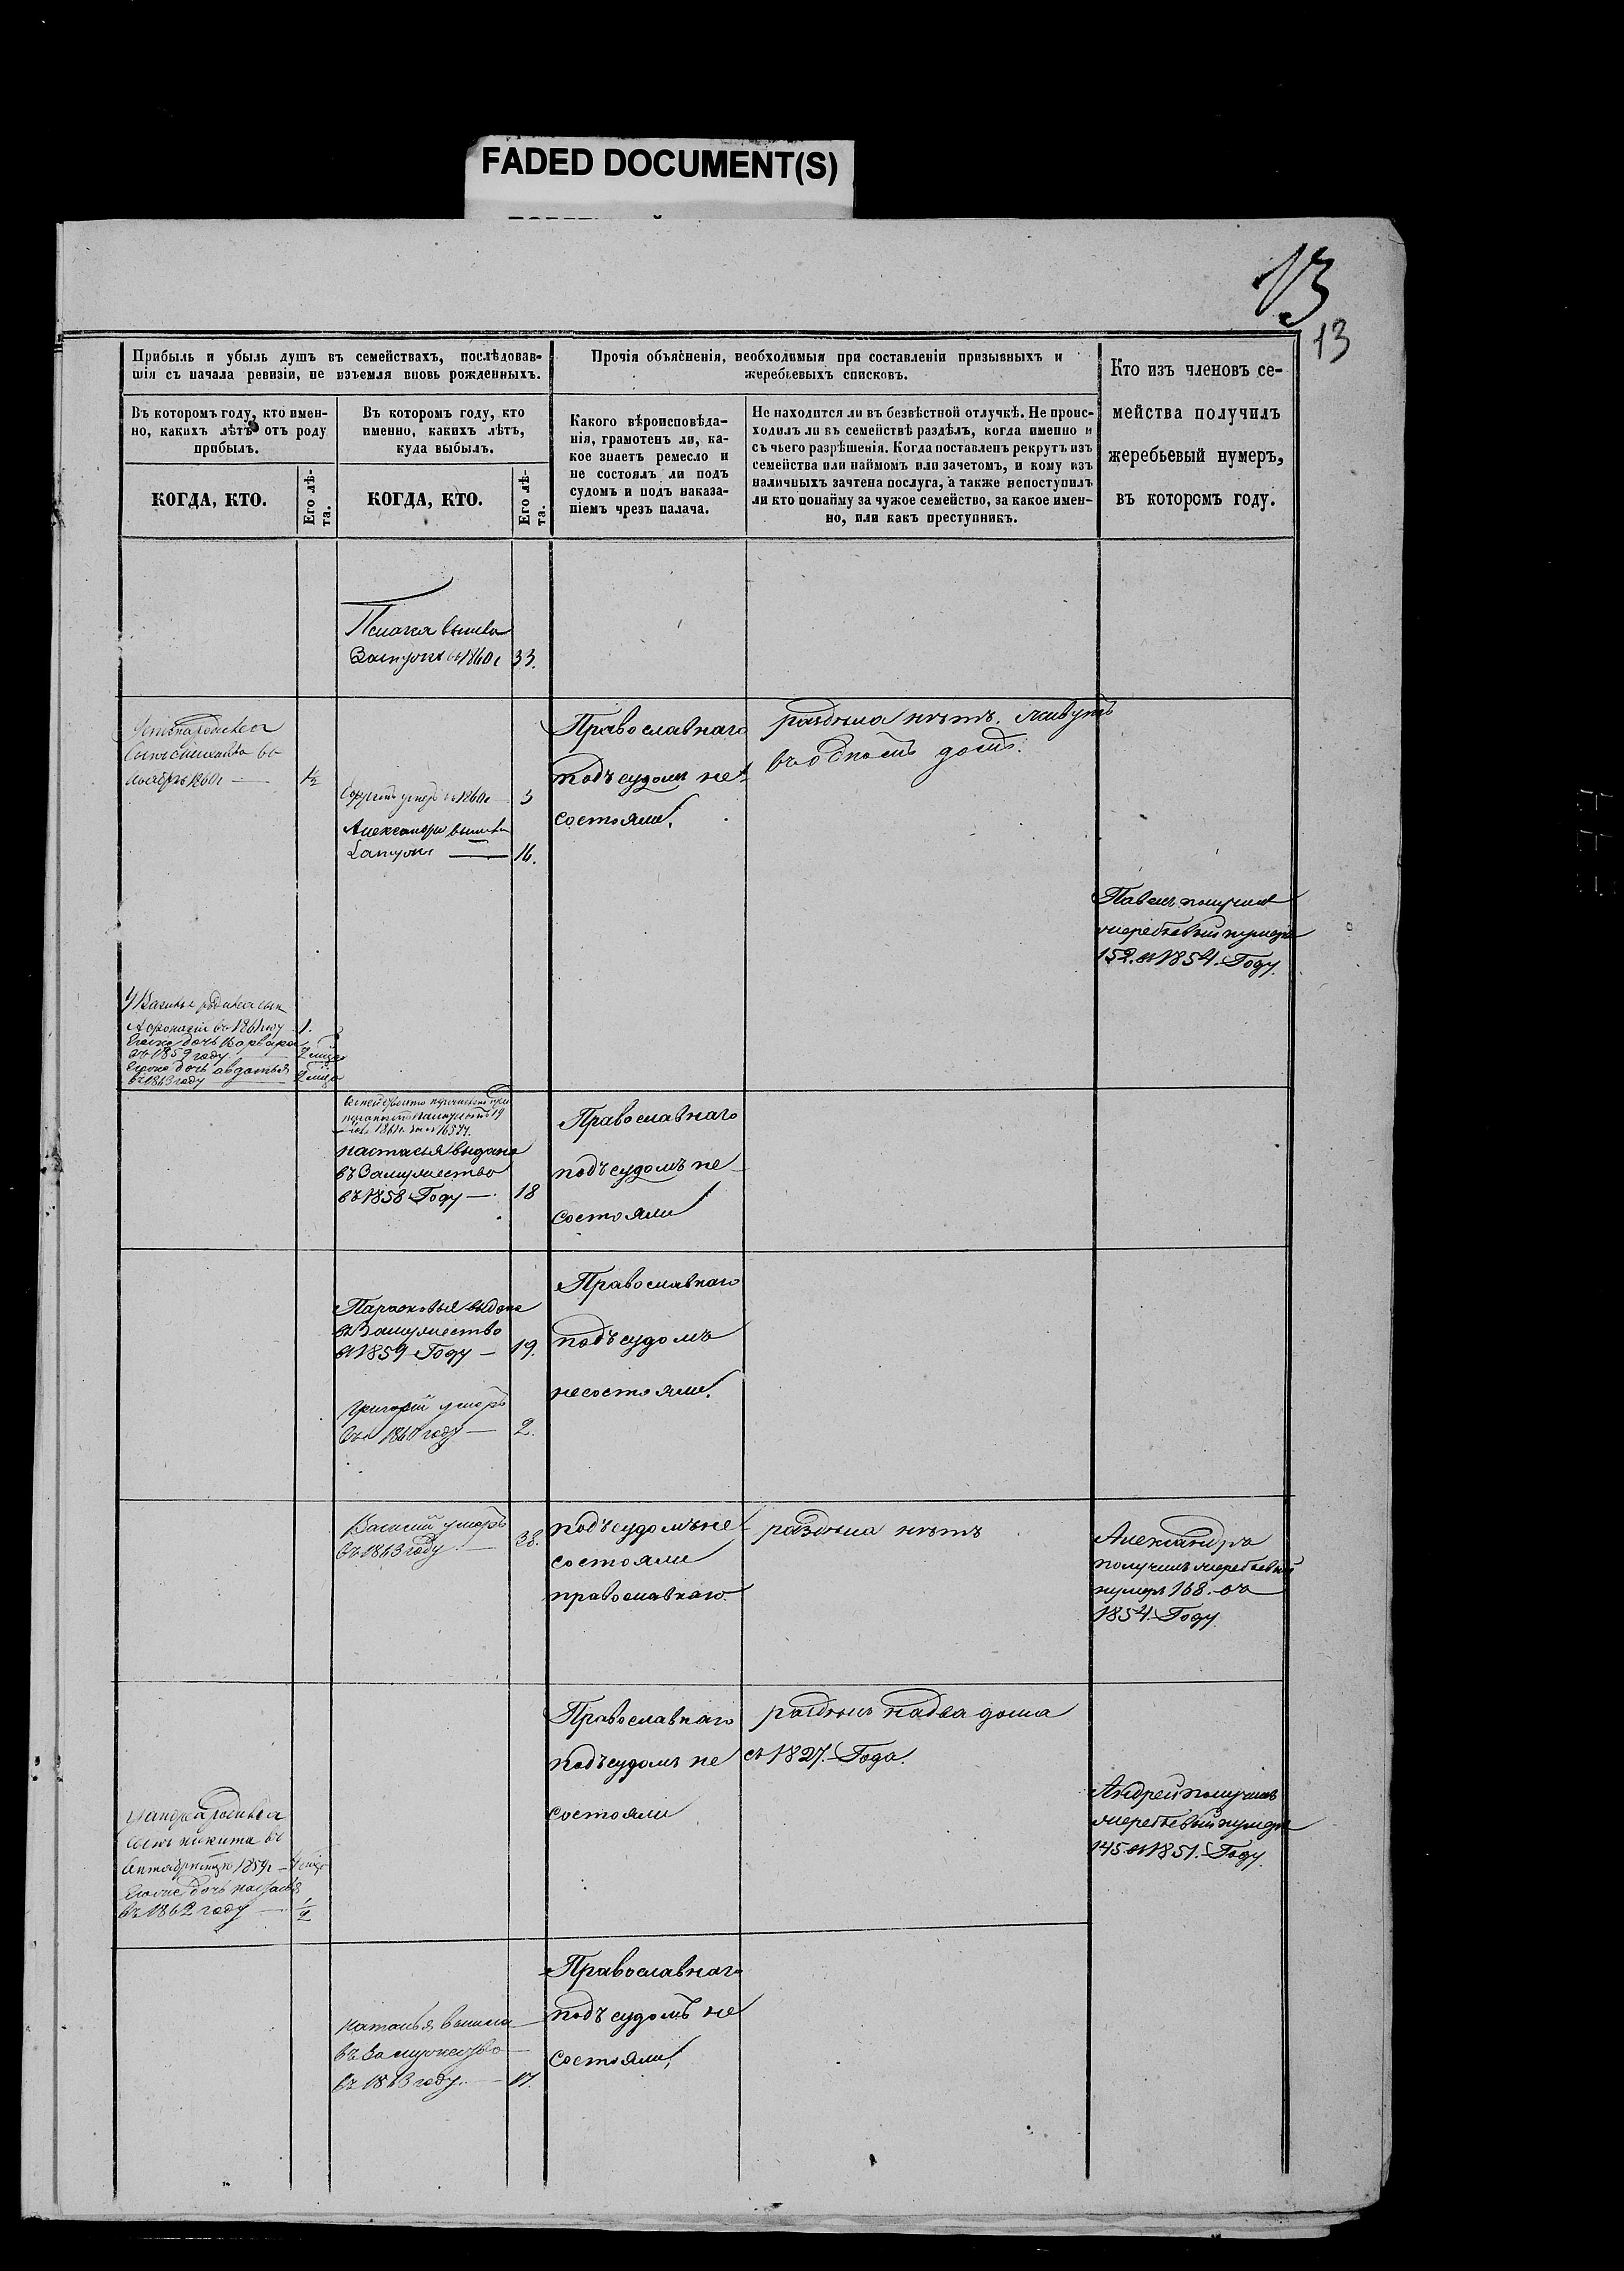 FADED DOCUMENT(S)
13
13
Прибыль и убыль душъ въ семействахъ, послѣдовав-
шія съ начала ревизіи, не изъемля вновь рожденныхъ.
Прочія объясненія, необходимыя при составленіи призывныхъ и
жеребьевыхъ списковъ.
Кто изъ членовъ се-
мейства получилъ
жеребьевый нумеръ,
въ которомъ году.
Въ которомъ году, кто имен-
но, какихъ лѣтъ отъ роду
прибылъ.
Въ которомъ году, кто
именно, какихъ лѣтъ,
куда выбылъ.
Какого вѣроисповѣда-
нія, грамотенъ ли, ка-
кое знаетъ ремесло и
не состоялъ ли подъ
судомъ и подъ наказа-
ніемъ чрезъ палача.
Не находится ли въ безвѣстной отлучкѣ. Не проис-
ходилъ ли въ семействѣ раздѣлъ, когда именно и
съ чьего разрѣшенія. Когда поставленъ рекрутъ изъ
семейства или наймомъ или зачетомъ, и кому изъ
наличныхъ зачтена послуга, а также непоступилъ
ли кто понайму за чужое семейство, за какое имен-
но, или какъ преступникъ.
КОГДА, КТО.
Его лѣ-
та.
КОГДА, КТО.
Его лѣ-
та.
вышла
Замужъ въ 1860 г 33.
родился
сынъ въ
ноябрѣ 1860 г — ½
умеръ въ 1860 г 3
Александра вышла
Замужъ — 16.
Православнаго
подъ судомъ не
состояли.
раздѣла нѣтъ. живутъ
въ одномъ домѣ.
Павелъ получилъ
жеребьевый нумеръ
152. въ 1854. Году.
родился сынъ
въ 1861 году 1.
дочь Варвара
въ 1859 году 2 мѣся
дочь авдотья
въ 1863 году 2 мѣся
19
1861 г.
настасья выдана
въ Замужество
въ 1858 Году — 18
Православнаго
подъ судомъ не
состояли
Парасковья выдана
въ Замужество
въ 1859 Году — 19.
Григорій умеръ
въ 1860 году — 2.
Православнаго
подъ судомъ
несостояли.
Василій умеръ
въ 1863 году — 38.
подъ судомъ не
состояли
православнаго.
раздѣла нѣтъ
Александръ
получилъ жеребьевый
нумеръ 168. въ
1854. Году.
родился
сынъ никита въ
1859 г
дочь
въ 1862 году — ½
Православнаго
подъ судомъ не
состояли
раздѣлъ на два дома
съ 1827. Года.
Андрей получилъ
жеребьевый нумеръ
145. въ 1851. Году.
наталья вышла
въ Замужество
въ 1863 году. — 17.
Православнаго
подъ судомъ не
состояли.